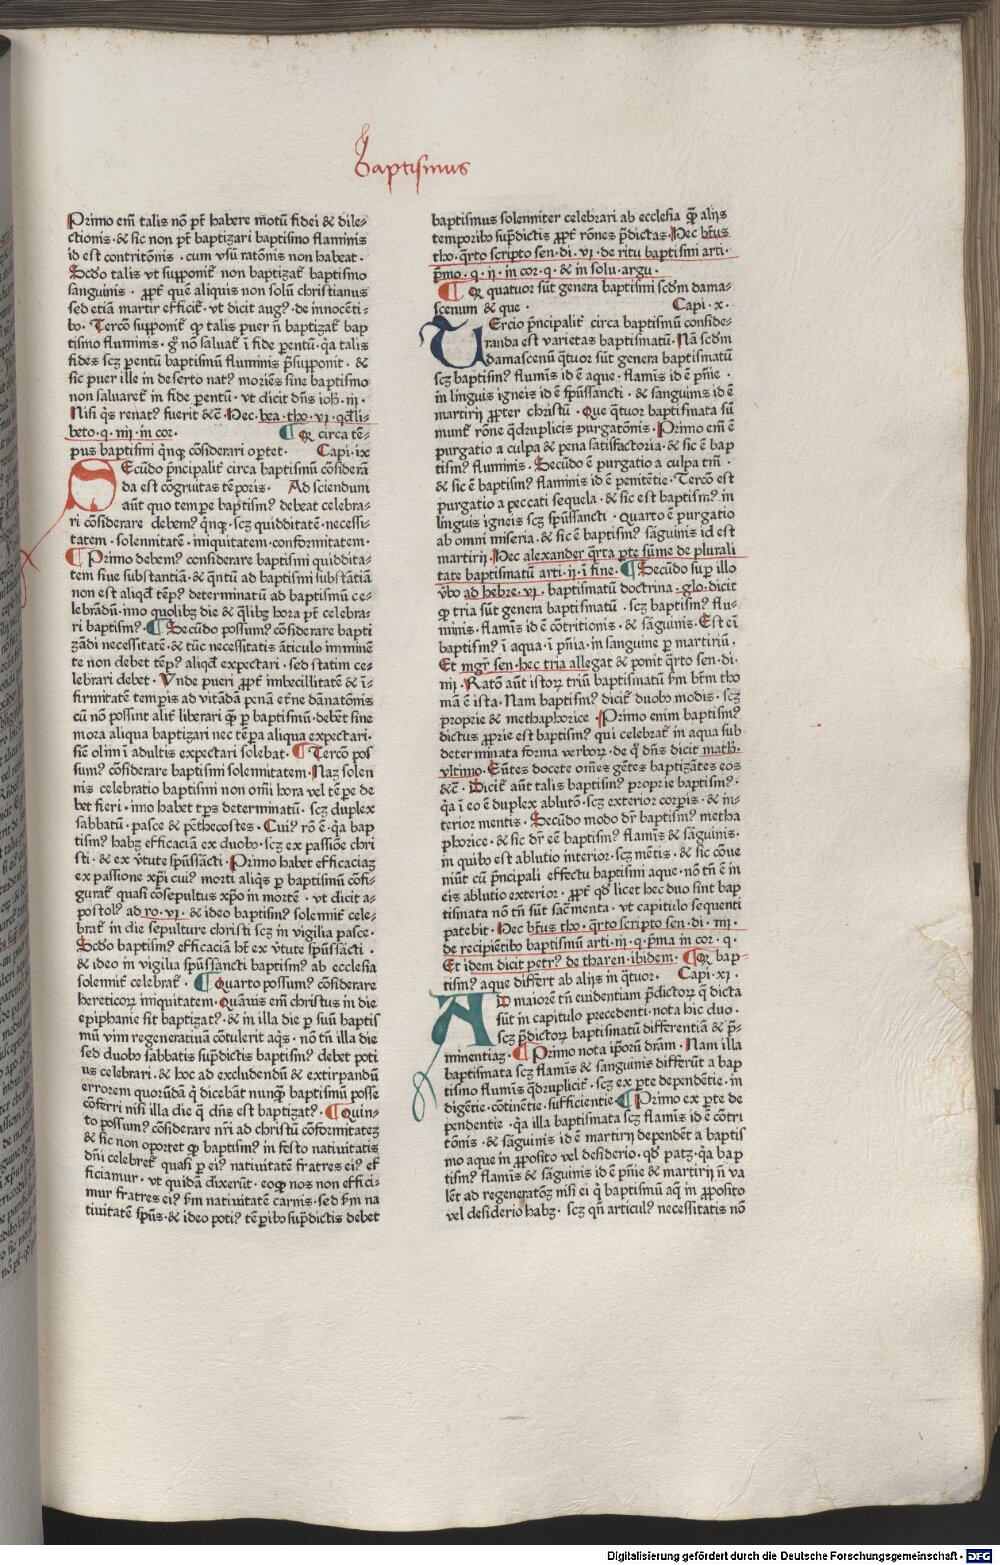 Baptismus
Primo em̄ talis nō pt̄ habere motū fidei & dile⸗
ctionis · & sic non pt̄ baptizari baptismo flaminis
id est contritōnis · cum vsū ratōnis non habeat ·
Scd̄o talis vt supponit̄ non baptizat̄ baptismo
sanguinis · ꝓpt̄ quē aliquis non solū christianus
sed etiā martir efficit̄ · vt dicit augꝰ · de innocēti⸗
bꝰ · Tercō supponit̄ ꝙ talis puer n̄ baptizat̄ bap
tismo fluminis · gͦ nō saluat̄ ī fide pentū · q̇a talis
fides scꝫ pentū baptismū fluminis p̄supponit · &
sic puer ille in deserto natꝰ moriēs sine baptismo
non saluaret̄ in fide pentū · vt dicit dn̄s ioh̄ · iij ·
Nisi q̇s renatꝰ fuerit &c̄ · Hec bea · tho · vj · qd̄li⸗
beto · q · iiij · in cor · ¶ Qꝫ circa tē⸗
pus baptismi q̇nqꝫ cōsiderari oꝑtet · Capi · ix
SEcūdo p̄ncipalit̄ circa baptismū cōsiderā
da est cōgruitas tēporis · Ad sciendum
aūt quo tempe baptismꝰ debeat celebra⸗
ri cōsiderare debemꝰ q̇nqꝫ · scꝫ quidditatē · necessi⸗
tatem · solennitatē · iniquitatem · conformitatem ·
¶ Primo debemꝰ considerare baptismi quiddita⸗
tem siue substantiā · & q̇ntū ad baptismi substātiā
non est aliqd̄ tēpꝰ determinatū ad baptismū ce⸗
lebrādū · imo quolibꝫ die & q̇libꝫ hora pt̄ celebra⸗
ri baptismꝰ · ¶ Secūdo possumꝰ cōsiderare bapti
zādi necessitatē · & tūc necessitatis āticulo imminē
te non debet tēpꝰ aliqd̄ expectari · sed statim ce⸗
lebrari debet · Vnde pueri ꝓpt̄ imbecillitatē & ī⸗
firmitatē tempis ad vitādā penā et̄ne dānatōnis
cū nō possint alit̄ liberari q̄ꝫ ꝑ baptismū · debēt sine
mora aliqua baptizari nec tēpa aliqua expectari ·
sic̄ olim ī adultis expectari solebat · ¶ Tercō pos
sumꝰ cōsiderare baptismi solennitatem · Naꝫ solen
nis celebratio baptismi non om̄i hora vel tēpe de
bet fieri · imo habet tp̄s determinatū · scꝫ duplex
sabbatū · pasce & pēthecostes · Cuiꝰ rō ē · q̇a bap
tismꝰ habꝫ efficaciā ex duobꝰ · scꝫ ex passiōe chri
sti · & ex v̄tute sp̄ussācti · Primo habet efficaciaꝫ
ex passione xp̄i cuiꝰ morti aliq̇s ꝑ baptismū cōfi⸗
gurat̄ quasi cōsepultus xp̄o in mortē · vt dicit a⸗
postolꝰ ad ro · vj · & ideo baptismꝰ solennit̄ cele⸗
brat̄ in die sepulture christi scꝫ in vigilia pasce ·
Scd̄o baptismꝰ efficaciā hꝫ ex v̄tute sp̄ussācti ·
& ideo in vigilia sp̄ussancti baptismꝰ ab ecclesia
solennit̄ celebrat̄ · ¶ Quarto possumꝰ cōsiderare
hereticoꝝ iniquitatem · Quāuis em̄ christus in die
epiphanie sit baptizatꝰ · & in illa die ꝑ suū baptis
mū vim regeneratiuā cōtulerit aq̇s · nō tn̄ illa die
sed duobꝰ sabbatis sup̄dictis baptismꝰ debet poti
us celebrari · & hoc ad excludendū & extirpandū
errorem quorūdā q̇ dicebāt nunq̄ꝫ baptismū posse
cōferri nisi illa die q̇ dn̄s est baptizatꝰ · ¶ Quin⸗
to possumꝰ cōsiderare nr̄i ad christū cōformitateꝫ
& sic non oportet ꝙ baptismꝰ in festo natiuitatis
dn̄i celebret̄ quasi ꝑ eiꝰ natiuitatē fratres eiꝰ ef
ficiamur · vt quidā dixerūt · eoqꝫ nos non effici⸗
mur fratres eiꝰ ẜm natiuitatē carnis · sed ẜm na
tiuitatē sp̄us · & ideo potiꝰ tēpibꝰ sup̄dictis debet
baptismus solenniter celebrari ab ecclesia q̄ꝫ alijs
temporibꝰ sup̄dictis ꝓpt̄ rōnes p̄dictas · Hec btūs
tho · q̇rto scripto sen · di · vj · de ritu baptismi arti ·
p̄mo · q · ij · in cor · q · & in solu · argu ·
¶ Qꝫ quatuor sūt genera baptismi scd̄m dama⸗
scenum & que · Capi · x ·
TErcio p̄ncipalit̄ circa baptismū conside⸗
randa est varietas baptismatū · Nā scd̄m
damascenū q̇tuor sūt genera baptismatū
scꝫ baptismꝰ flumīs id ē aque · flamīs id ē pn̄ie ·
in linguis igneis id ē sp̄ussancti · & sanguinis id ē
martirij ꝓpter christū · Que q̇tuor baptismata sū
munt̄ rōne q̇druplicis purgatōnis · Primo em̄ ē
purgatio a culpa & pena satisfactoria · & sic ē bap
tismꝰ fluminis · Secūdo ē purgatio a culpa tm̄ ·
& sic ē baptismꝰ flaminis id ē penitētie · Tercō est
purgatio a peccati sequela · & sic est baptismꝰ in
linguis igneis scꝫ sp̄ussancti · Quarto ē purgatio
ab omni miseria · & sic ē baptismꝰ sāguinis id est
martirij · Hec alexander q̇rta pte sūme de plurali
tate baptismatū arti · ij · ī fine · ¶ Secūdo suꝑ illo
v̄bo ad hebre · vj · baptismatū doctrina · glo · dicit
ꝙ tria sūt genera baptismatū · scꝫ baptismꝰ flu⸗
minis · flamīs id ē cōtritionis · & sāguinis · Est eī
baptismꝰ ī aqua · ī pn̄ia · in sanguine ꝑ martiriū ·
Et mgr̄ sen · hec tria allegat & ponit q̇rto sen · di ·
iiij · Ratō aūt istoꝝ triū baptismatū ẜm btm̄ tho
mā ē ista · Nam baptismꝰ dicit̄ duobꝰ modis · scꝫ
proprie & methaphorice · Primo enim baptismꝰ
dictus ꝓprie est baptismꝰ qui celebrat̄ in aqua sub
determinata forma verboꝝ · de q̇ dn̄s dicit math̄ ·
vltimo · Eūtes docete om̄es gētes baptizātes eos
&c̄ · Dicit̄ aūt talis baptismꝰ proprie baptismꝰ ·
q̇a ī eo ē duplex ablutō · scꝫ exterior corpis · & in⸗
terior mentis · Secūdo modo dr̄ baptismꝰ metha
phorice · & sic dr̄ eē baptismꝰ flamīs & sāguinis ·
in quibꝰ est ablutio interior · scꝫ mētis · & sic cōue
niūt cū p̄ncipali effectu baptismi aque · nō tn̄ ē in
eis ablutio exterior · ꝓpt̄ qd̄ licet hec duo sint bap
tismata nō tn̄ sūt sac̄menta · vt capitulo sequenti
patebit · Hec btūs tho · q̇rto scripto sen · di · iiij ·
de recipiētibꝰ baptismū arti · iij · q · p̄ma in cor · q ·
Et idem dicit petrꝰ de tharen · ibidem · ¶ Qꝫ bap⸗
tismꝰ aque differt ab alijs in q̇tuor · Capi · xj ·
AD maiorē tn̄ euidentiam p̄dictoꝝ q̇ dicta
sūt in capitulo precedenti · nota hic duo ·
scꝫ p̄dictoꝝ baptismatū differentiā & p̄⸗
minentiaꝫ · ¶ Primo nota ip̄oꝝ dr̄am · Nam illa
baptismata scꝫ flamīs & sanguinis differūt a bap
tismo flumīs q̇druplicit̄ · scꝫ ex pte dependētie · in
digētie · cōtinētie · sufficientie ¶ Primo ex pte de
pendentie · q̇a illa baptismata scꝫ flamīs id ē cōtri
tōnis · & sāguinis id ē martirij dependēt a baptis
mo aque in ꝓposito vel desiderio · qd̄ patꝫ · q̇a bap
tismꝰ flamīs & sāguinis id ē pn̄ie & martirij n̄ va
lēt ad regeneratōꝫ nisi ei q̇ baptismū aq̄ in ꝓposito
vel desiderio habꝫ · scꝫ qn̄ articulꝰ necessitatis nō
Digitalisierung gefördert durch die Deutsche Forschungsgemeinschaft - DFG